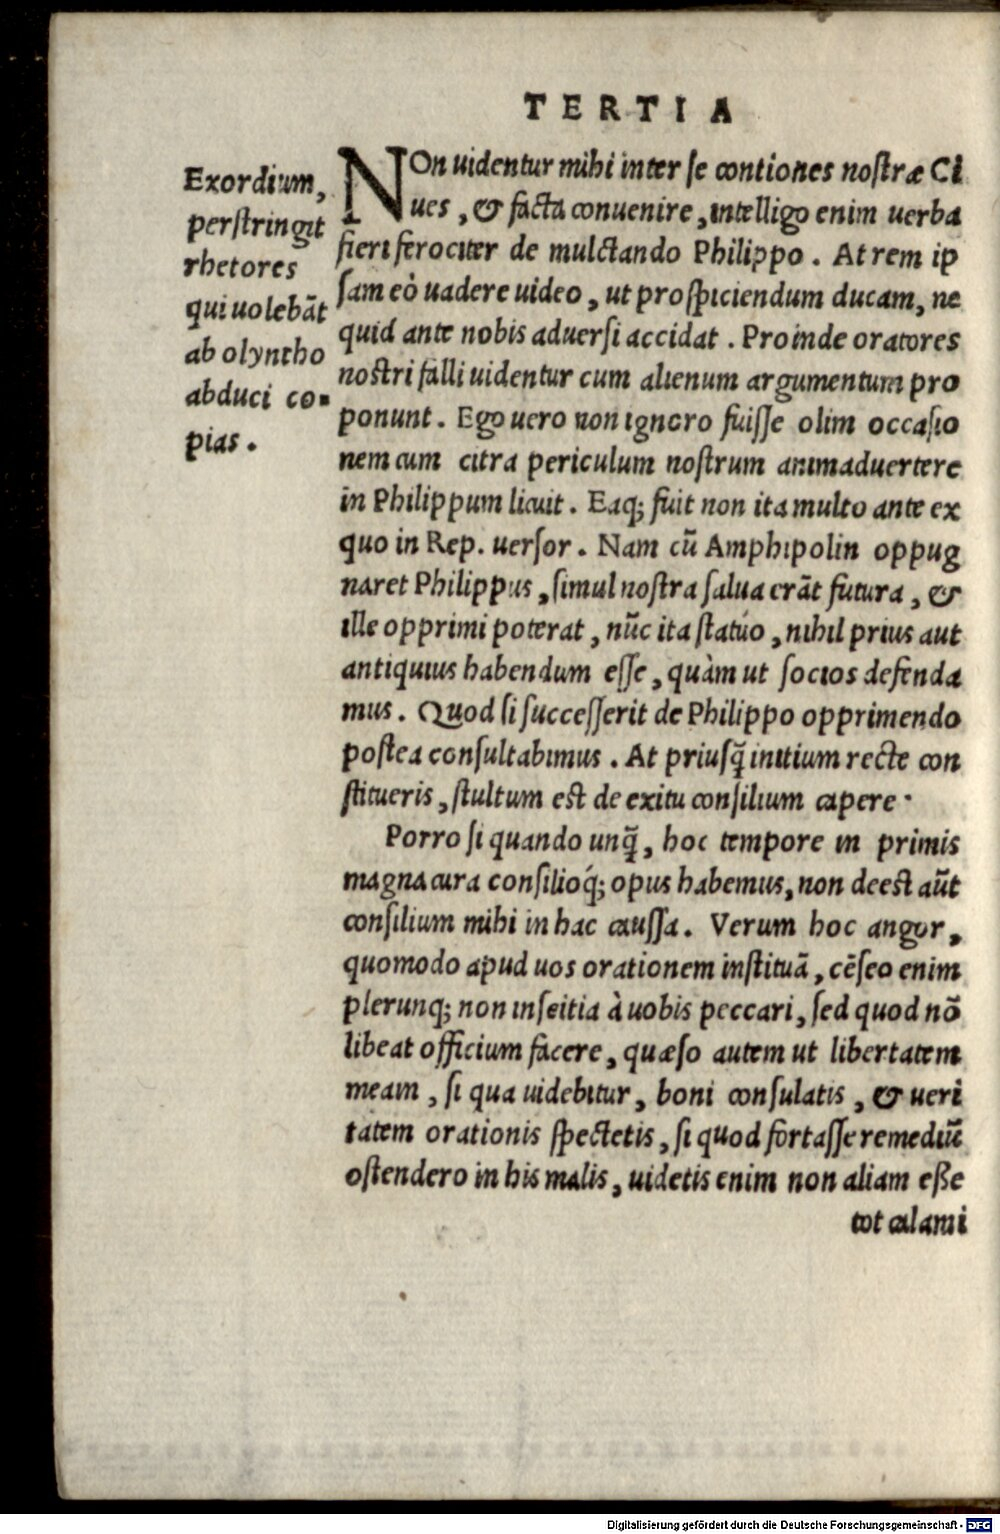 TERTIA
Exordium,
perſtringit
rhetores
qui uolebāt
ab olyntho
abduci co-
pias.
NOn uidentur mihi inter ſe contiones noſtræ Ci
ues, & facta conuenire, intelligo enim uerba
fieri ferociter de mulctando Philippo. At rem ip
ſam eò uadere uideo, ut proſpiciendum ducam, ne
quid ante nobis aduerſi accidat. Proinde oratores
noſtri falli uidentur cum alienum argumentum pro
ponunt. Ego uero non ignoro fuiſſe olim occaſio
nem cum citra periculum noſtrum animaduertere
in Philippum licuit. Eaq; fuit non ita multo ante ex
quo in Rep. uerſor. Nam cū Amphipolin oppug
naret Philippus, ſimul noſtra ſalua erāt futura, &
ille opprimi poterat, nūc ita ſtatuo, nihil prius aut
antiquius habendum eſſe, quàm ut ſocios defenda
mus. Quod ſi ſucceſſerit de Philippo opprimendo
poſtea conſultabimus. At priuſq̃ initium recte con
ſtitueris, ſtultum eſt de exitu conſilium capere.
Porro ſi quando unq̃, hoc tempore in primis
magna cura conſilioq́; opus habemus, non deeſt aūt
conſilium mihi in hac cauſſa. Verum hoc angor,
quomodo apud uos orationem inſtituā, cēſeo enim
plerunq; non inſcitia à uobis peccari, ſed quod nō
libeat officium facere, quæſo autem ut libertatem
meam, ſi qua uidebitur, boni conſulatis, & ueri
tatem orationis ſpectetis, ſi quod fortaſſe remediū
oſtendero in his malis, uidetis enim non aliam eße
tot calami
Digitalisierung gefördert durch die Deutsche Forschungsgemeinschaft - DFG